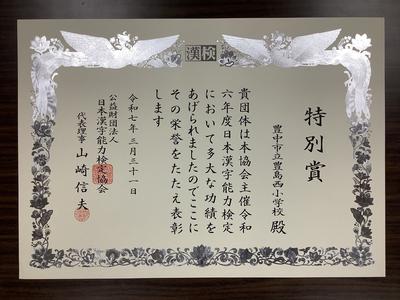 漢検
特別賞
豊中市立豊島西小学校 殿
貴団体は本協会主催令和
六年度日本漢字能力検定
において多大な功績を
あげられましたのでここに
その栄誉をたたえ表彰
します
令和七年三月三十一日
公益財団法人
日本漢字能力検定協会
代表理事 山崎信夫